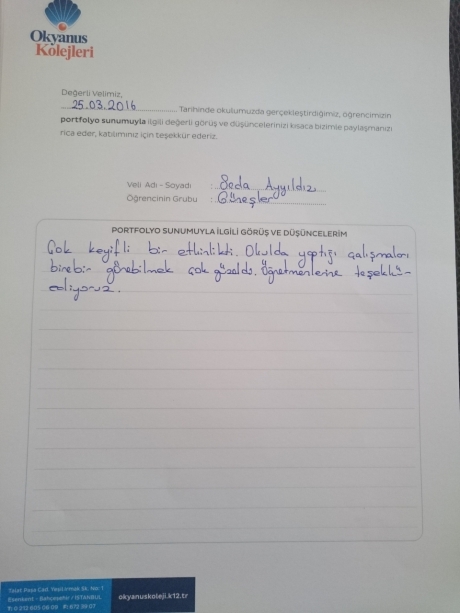 Okyanus
Kolejleri
Değerli Velimiz,
25.03.2016 Tarihinde okulumuzda gerçekleştirdiğimiz, öğrencimizin
portfolyo sunumuyla ilgili değerli görüş ve düşüncelerinizi kısaca bizimle paylaşmanızı
rica eder, katılımınız için teşekkür ederiz.
Veli Adı - Soyadı : Seda Ayyıldız
Öğrencinin Grubu : Güneşler
PORTFOLYO SUNUMUYLA İLGİLİ GÖRÜŞ VE DÜŞÜNCELERİM
Çok keyifli bir etkinlikti. Okulda yaptığı çalışmaları
birebir görebilmek çok güzeldi. Öğretmenlerine teşekkür
ediyoruz.
Talat Paşa Cad. Yeşilırmak Sk. No: 1
Esenkent - Bahçeşehir / İSTANBUL
T: 0 212 605 09 09 F: 672 39 07
okyanuskoleji.k12.tr